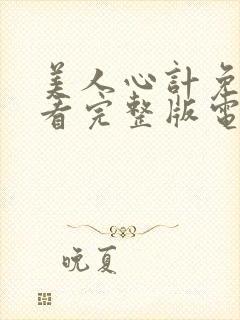 美人心計免
看完整版電
晚夏